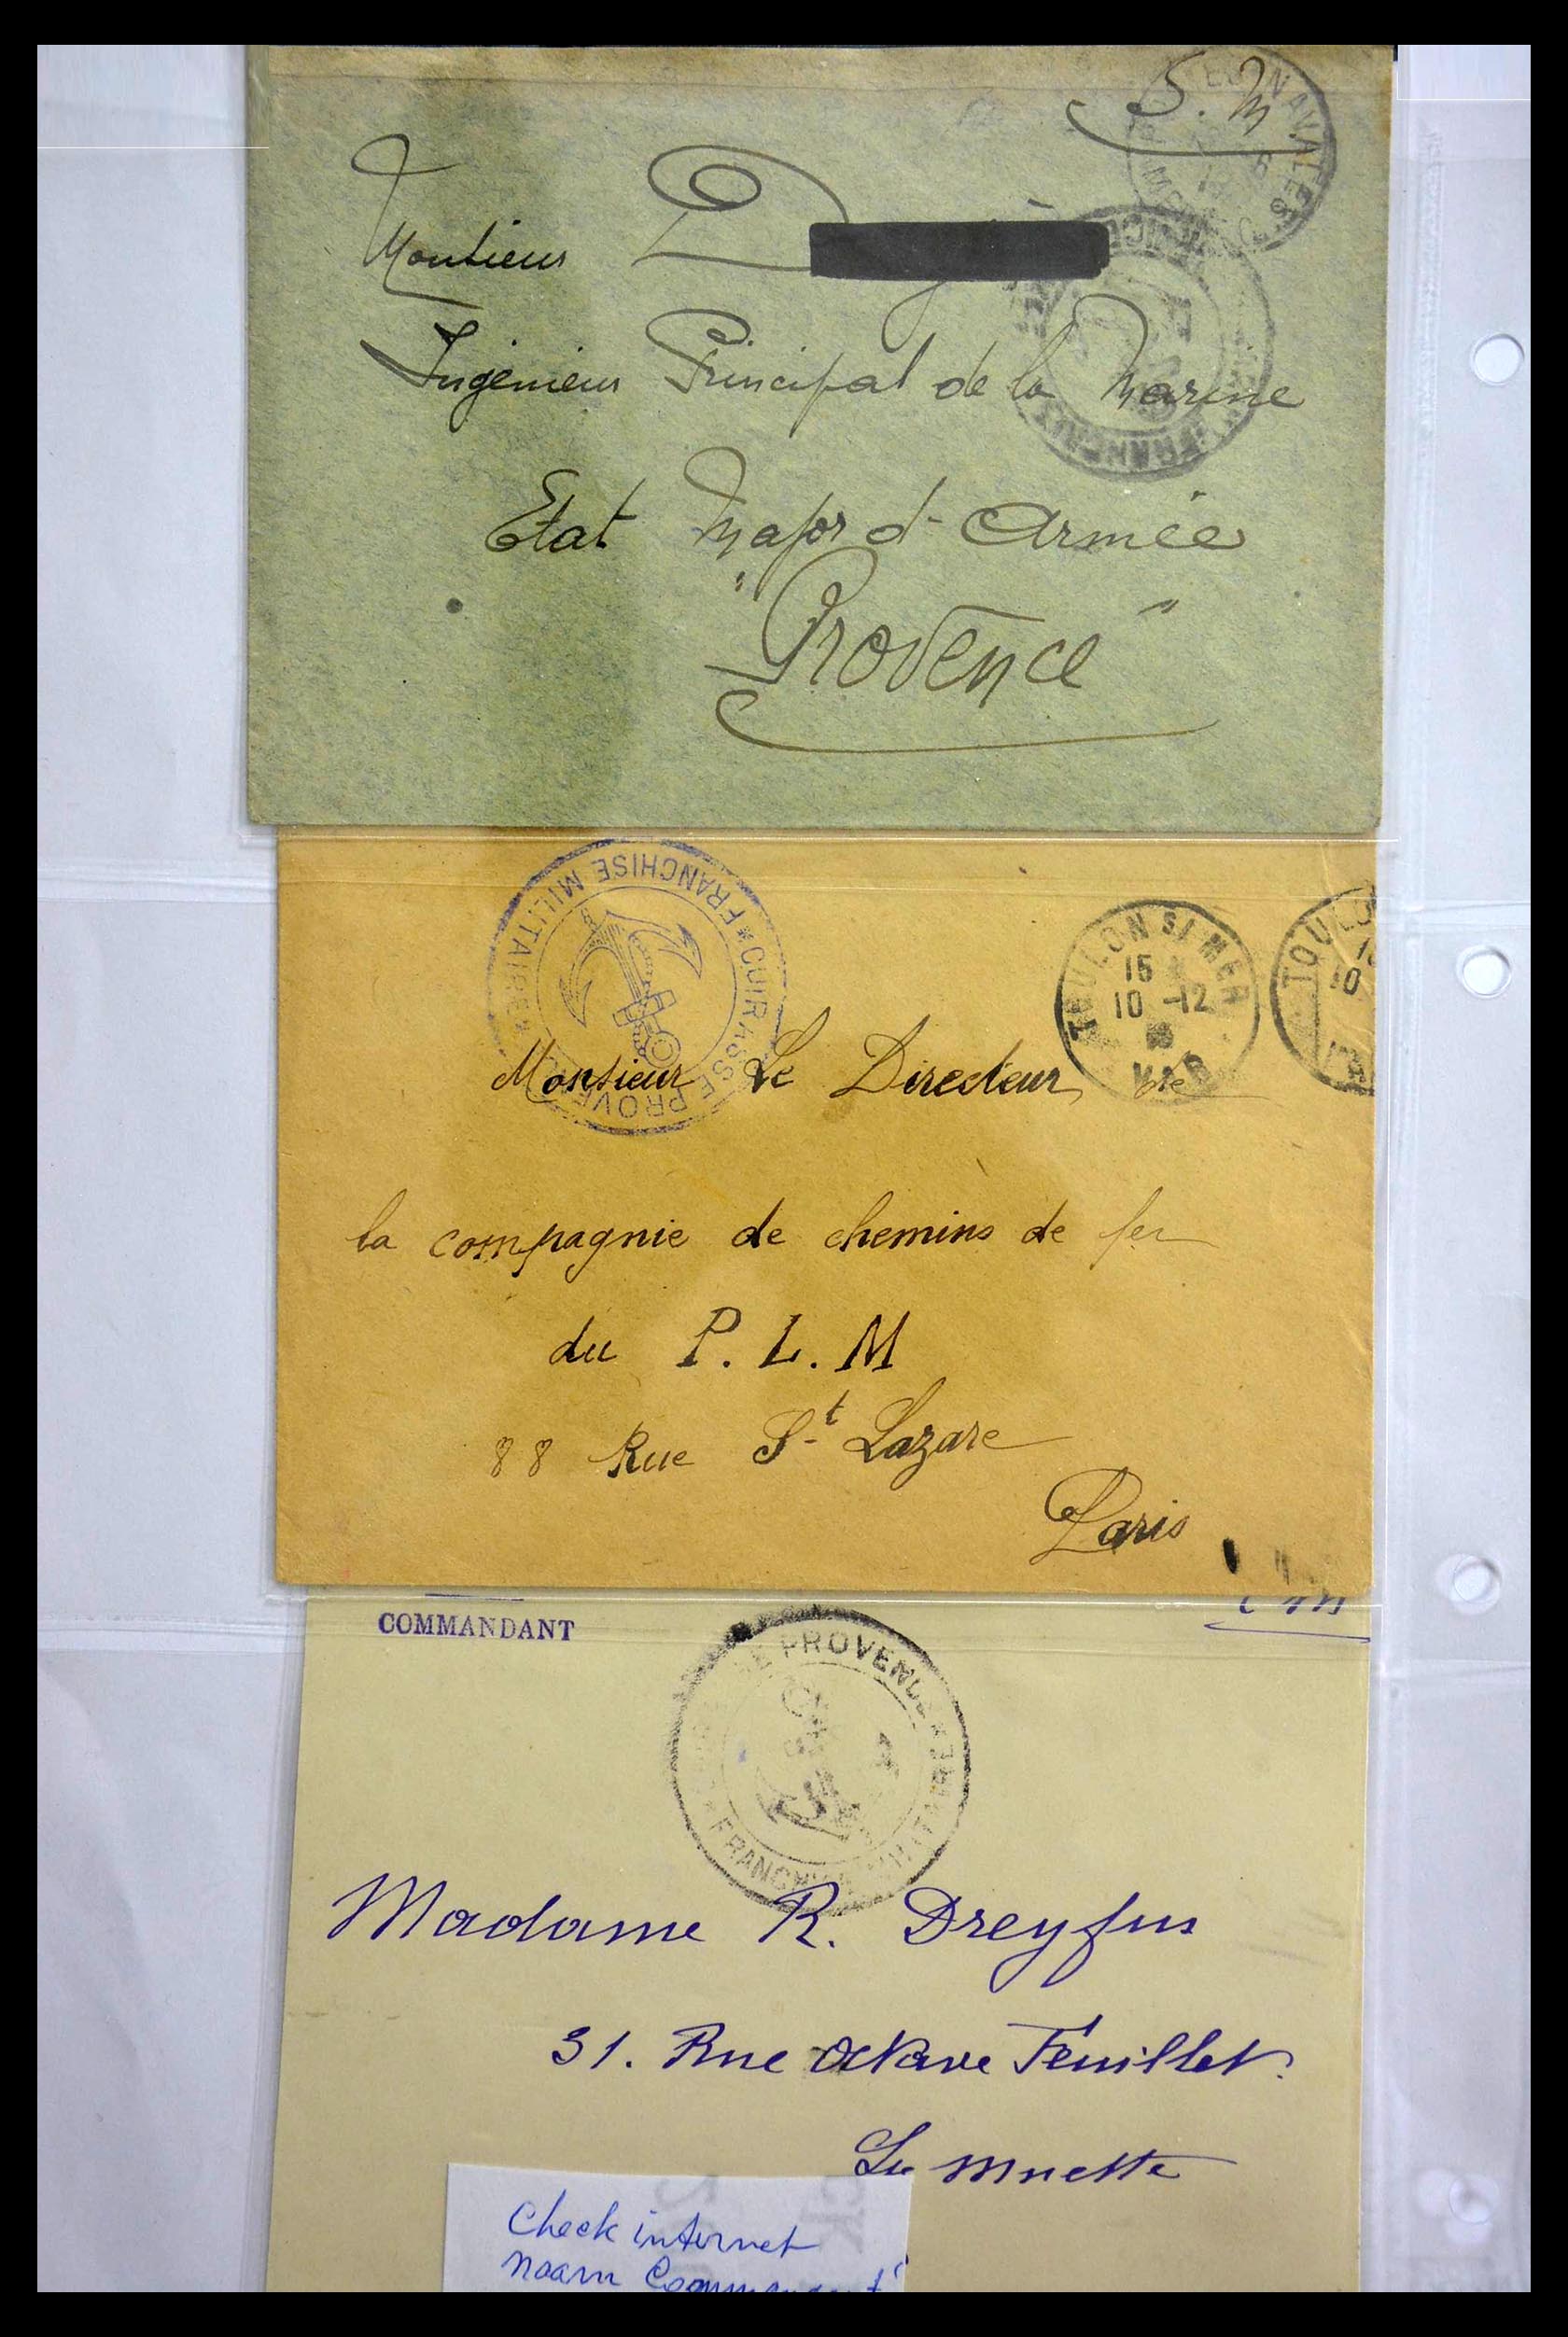 S. M
Monsieur D
Ingénieur Principal de la Marine
Etat Major d'Armée
"Provence"
FRANCHISE MILITAIRE
CUIRASSÉ PROVENCE
TOULON S/ MER
15
10 -12
VAR
TOULO
10
Monsieur Le Directeur de
la compagnie de chemins de fer
du P. L. M
88 Rue St Lazare
Paris
COMMANDANT
PROVENCE
FRANCHISE MILITAIRE
Madame R. Dreyfus
31. Rue Octave Feuillet.
La Muette
Check internet
naam Commandant